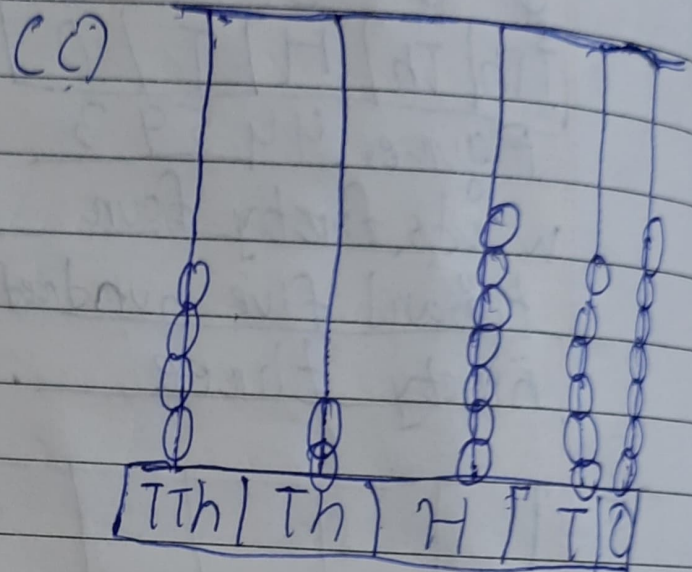 (C)
TTh | Th | H | T | O